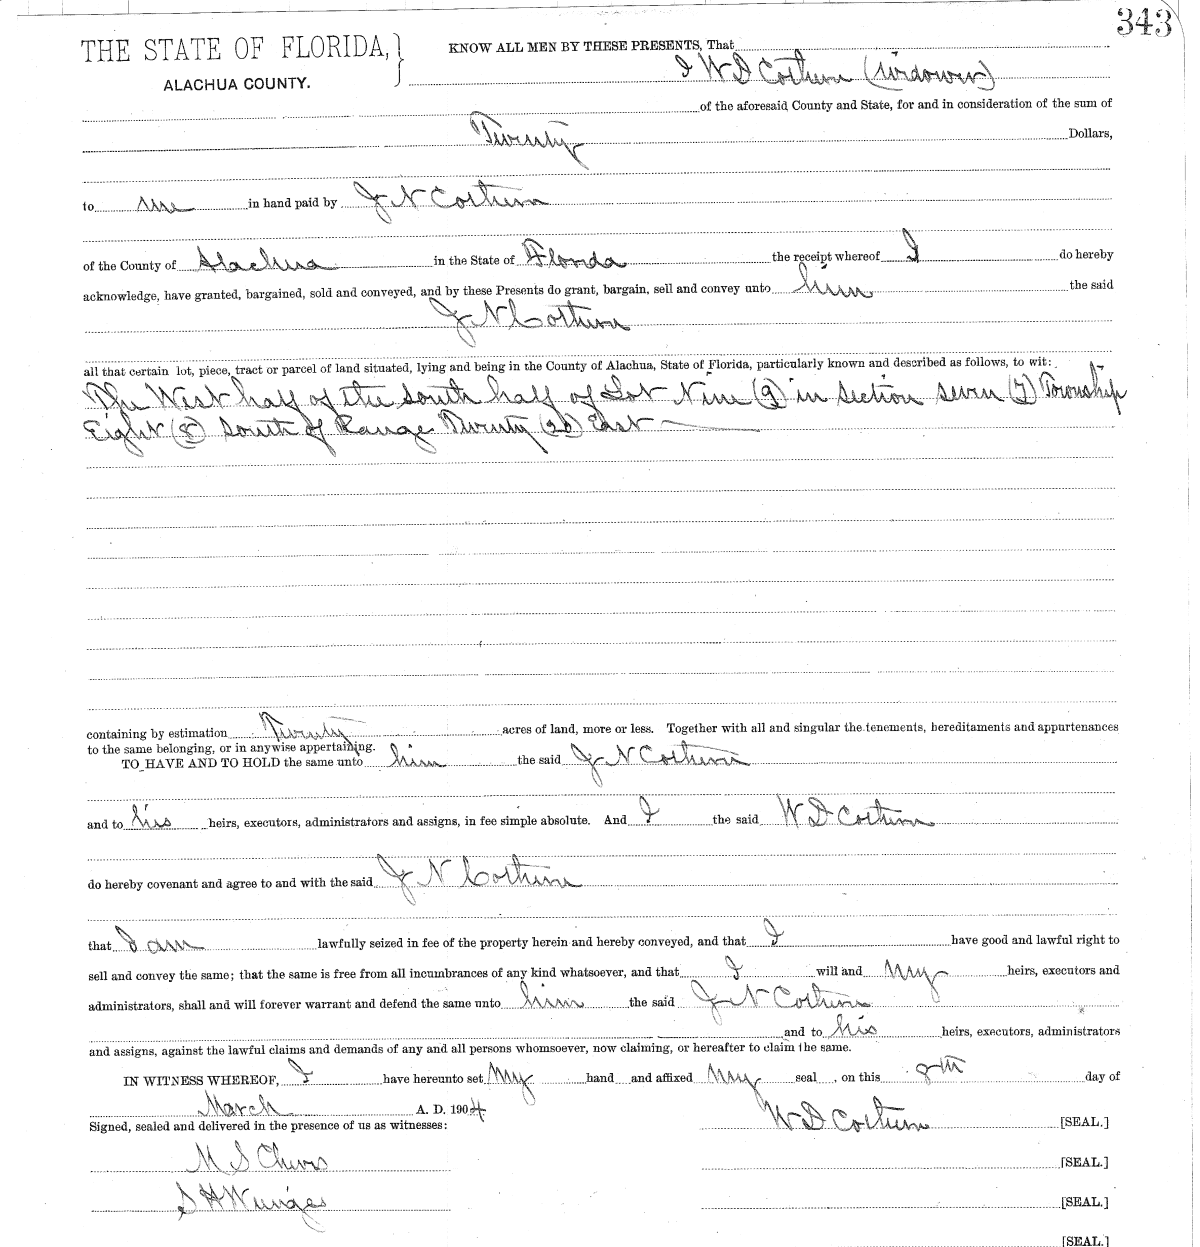 343
THE STATE OF FLORIDA,
ALACHUA COUNTY.
KNOW ALL MEN BY THESE PRESENTS, That
I W D Cothern (widower)
of the aforesaid County and State, for and in consideration of the sum of
Twenty Dollars,
to me in hand paid by J N Cothern
of the County of Alachua in the State of Florida the receipt whereof I do hereby
acknowledge, have granted, bargained, sold and conveyed, and by these Presents do grant, bargain, sell and convey unto him the said
J N Cothern
all that certain lot, piece, tract or parcel of land situated, lying and being in the County of Alachua, State of Florida, particularly known and described as follows, to wit:
The West half of the south half of Lot Nine (9) in Section seven (7) Township
Eight (8) South of Range Twenty (20) East
containing by estimation Twenty acres of land, more or less. Together with all and singular the tenements, hereditaments and appurtenances
to the same belonging, or in anywise appertaining.
TO HAVE AND TO HOLD the same unto him the said J N Cothern
and to his heirs, executors, administrators and assigns, in fee simple absolute. And I the said W D Cothern
do hereby covenant and agree to and with the said J N Cothern
that I am lawfully seized in fee of the property herein and hereby conveyed, and that I have good and lawful right to
sell and convey the same; that the same is free from all incumbrances of any kind whatsoever, and that I will and my heirs, executors and
administrators, shall and will forever warrant and defend the same unto him the said J N Cothern
and to his heirs, executors, administrators
and assigns, against the lawful claims and demands of any and all persons whomsoever, now claiming, or hereafter to claim the same.
IN WITNESS WHEREOF, I have hereunto set my hand and affixed my seal, on this 8th day of
March A. D. 1904
Signed, sealed and delivered in the presence of us as witnesses:
W D Cothern [SEAL.]
M S [SEAL.]
S H [SEAL.]
[SEAL.]